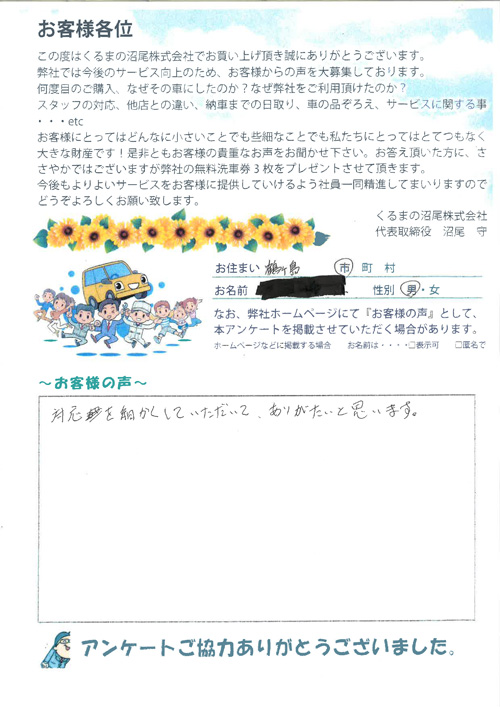 お客様各位
この度はくるまの沼尾株式会社でお買い上げ頂き誠にありがとうございます。
弊社では今後のサービス向上のため、お客様からの声を大募集しております。
何度目のご購入、なぜその車にしたのか？なぜ弊社をご利用頂けたのか？
スタッフの対応、他店との違い、納車までの日取り、車の品ぞろえ、サービスに関する事
・・・etc
お客様にとってはどんなに小さいことでも些細なことでも私たちにとってはとてつもなく
大きな財産です！是非ともお客様の貴重なお声をお聞かせ下さい。お答え頂いた方に、さ
さやかではございますが弊社の無料洗車券３枚をプレゼントさせて頂きます。
今後もよりよいサービスをお客様に提供していけるよう社員一同精進してまいりますので
どうぞよろしくお願い致します。
くるまの沼尾株式会社
代表取締役 沼尾 守
お住まい 鶴ヶ島 市 町 村
お名前 性別 男・女
なお、弊社ホームページにて『お客様の声』として、
本アンケートを掲載させていただく場合があります。
ホームページなどに掲載する場合 お名前は・・・・□表示可 □匿名で
～お客様の声～
対応を細かくしていただいて、ありがたいと思います。
アンケートご協力ありがとうございました。